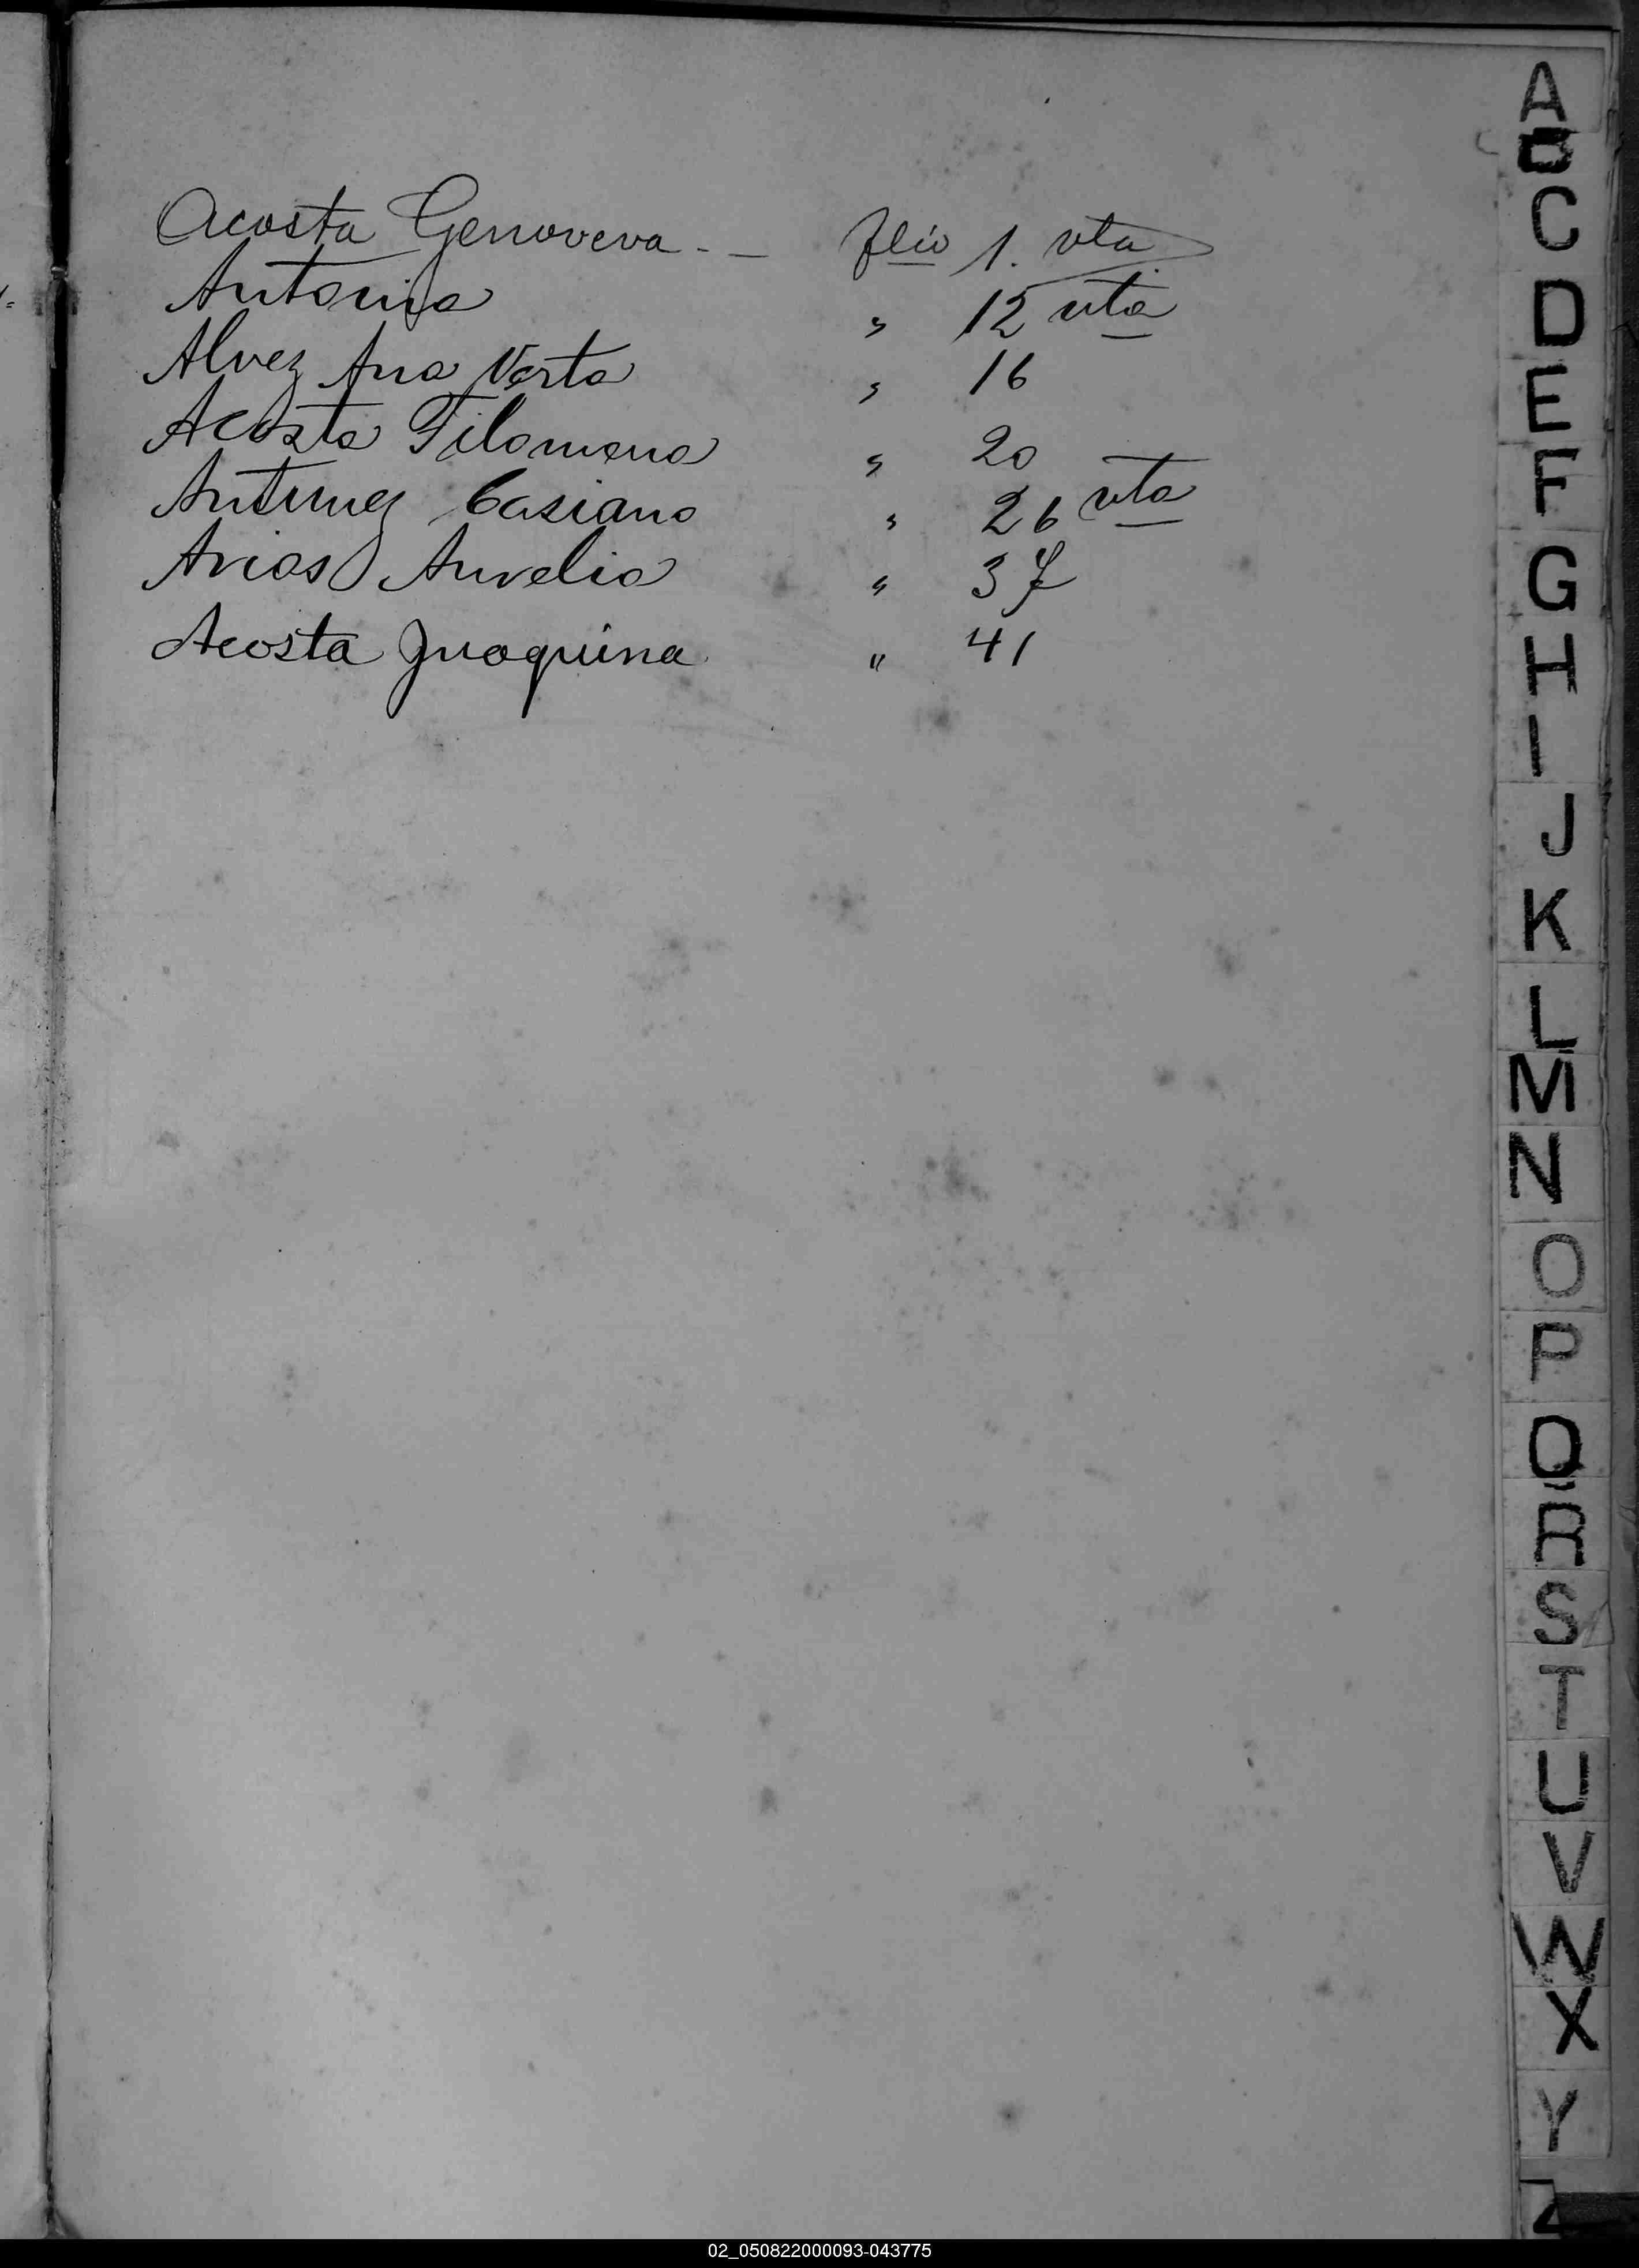 Acosta Genoveva - - flio 1. vta
Antonia " 12 vta
Alvez Ana Verta " 16
Acosta Filomena " 20
Antunez Casiano " 26 vta
Arias Aurelia " 37
Acosta Juaquina " 41
A
B
C
D
E
F
G
H
I
J
K
L
M
N
O
P
Q
R
S
T
U
V
W
X
Y
Z
02_050822000093-043775